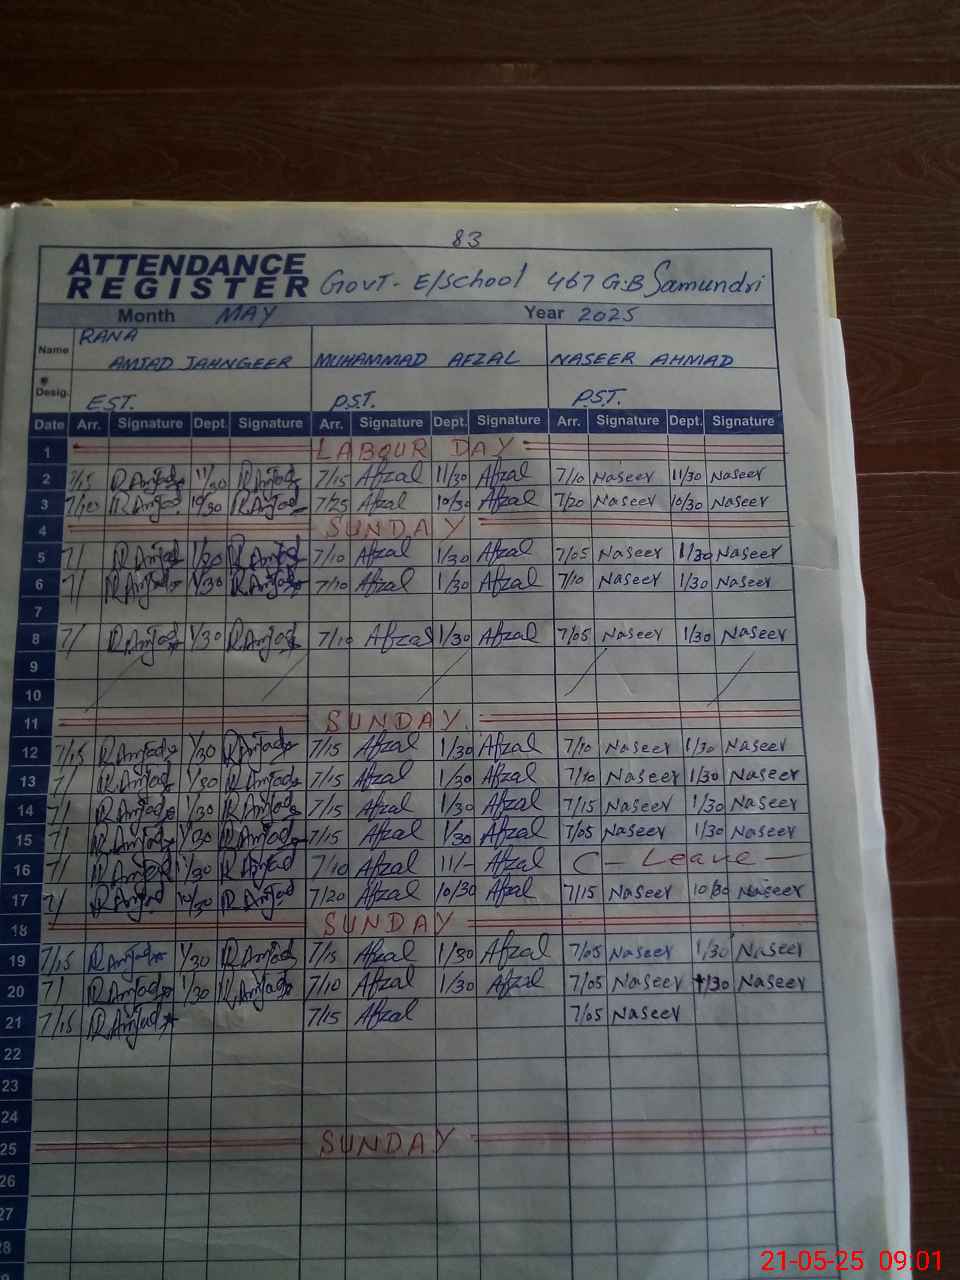 83
ATTENDANCE
REGISTER GOVT- E/School 467 G.B Samundri
Month MAY Year 2025
Name RANA
AMJAD JAHNGEER MUHAMMAD AFZAL NASEER AHMAD
Desig. EST. P.S.T. P.S.T.
Date Arr. Signature Dept. Signature Arr. Signature Dept. Signature Arr. Signature Dept. Signature
1 LABOUR DAY
2 7/15 R.Amjad 11/30 R.Amjad 7/15 Afzal 11/30 Afzal 7/10 Naseer 11/30 Naseer
3 R.Amjad 10/30 R.Amjad 7/25 Afzal 10/30 Afzal 7/20 Naseer 10/30 Naseer
4 SUNDAY
5 7/ R.Amjad 1/30 R.Amjad 7/10 Afzal 1/30 Afzal 7/05 Naseer 1/30 Naseer
6 7/ R.Amjad 1/30 R.Amjad 7/10 Afzal 1/30 Afzal 7/10 Naseer 1/30 Naseer
7
8 7/ R.Amjad 1/30 R.Amjad 7/10 Afzal 1/30 Afzal 7/05 Naseer 1/30 Naseer
9
10
11 SUNDAY
12 7/15 R.Amjad 1/30 R.Amjad 7/15 Afzal 1/30 Afzal 7/10 Naseer 1/30 Naseer
13 7/ R.Amjad 1/30 R.Amjad 7/15 Afzal 1/30 Afzal 7/10 Naseer 1/30 Naseer
14 7/ R.Amjad 1/30 R.Amjad 7/15 Afzal 1/30 Afzal 7/15 Naseer 1/30 Naseer
15 7/ R.Amjad 1/30 R.Amjad 7/15 Afzal 1/30 Afzal 7/05 Naseer 1/30 Naseer
16 7/ R.Amjad 11/30 R.Amjad 7/10 Afzal 11/- Afzal C - Leave -
17 7/ R.Amjad 10/30 R.Amjad 7/20 Afzal 10/30 Afzal 7/15 Naseer 10/30 Naseer
18 SUNDAY
19 7/15 R.Amjad 1/30 R.Amjad 7/15 Afzal 1/30 Afzal 7/05 Naseer 1/30 Naseer
20 7/ R.Amjad 1/30 R.Amjad 7/10 Afzal 1/30 Afzal 7/05 Naseer 1/30 Naseer
21 7/15 R.Amjad 7/15 Afzal 7/05 Naseer
22
23
24
25 SUNDAY
26
27
28
21-05-25 09:01